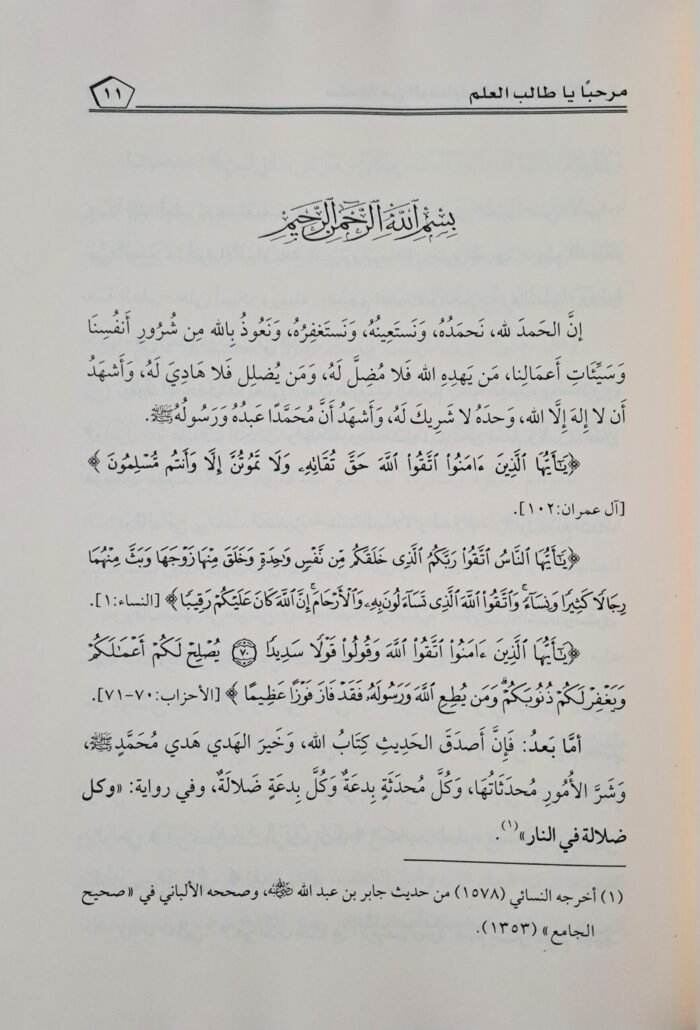 مرحبًا يا طالب العلم
١١
بِسْمِ ٱللَّهِ ٱلرَّحْمَٰنِ ٱلرَّحِيمِ
إنَّ الحَمدَ لله، نَحمَدُهُ، وَنَستَعِينُهُ، وَنَستَغفِرُهُ، وَنَعُوذُ بِالله مِن شُرُورِ أَنفُسِنَا
وَسَيِّئَاتِ أَعمَالِنا، مَن يَهدِهِ الله فَلا مُضِلَّ لَهُ، وَمَن يُضلِل فَلا هَادِيَ لَهُ، وَأَشهَدُ
أَن لا إلهَ إلَّا الله، وَحدَهُ لا شَرِيكَ لَهُ، وَأَشهَدُ أَنَّ مُحَمَّدًا عَبدُهُ وَرَسُولُهُ ﷺ.
﴿يَٰٓأَيُّهَا ٱلَّذِينَ ءَامَنُوا۟ ٱتَّقُوا۟ ٱللَّهَ حَقَّ تُقَاتِهِۦ وَلَا تَمُوتُنَّ إِلَّا وَأَنتُم مُّسْلِمُونَ﴾
[آل عمران:١٠٢].
﴿يَٰٓأَيُّهَا ٱلنَّاسُ ٱتَّقُوا۟ رَبَّكُمُ ٱلَّذِى خَلَقَكُم مِّن نَّفْسٍ وَٰحِدَةٍ وَخَلَقَ مِنْهَا زَوْجَهَا وَبَثَّ مِنْهُمَا
رِجَالًا كَثِيرًا وَنِسَآءً ۚ وَٱتَّقُوا۟ ٱللَّهَ ٱلَّذِى تَسَآءَلُونَ بِهِۦ وَٱلْأَرْحَامَ ۚ إِنَّ ٱللَّهَ كَانَ عَلَيْكُمْ رَقِيبًا﴾ [النساء:١].
﴿يَٰٓأَيُّهَا ٱلَّذِينَ ءَامَنُوا۟ ٱتَّقُوا۟ ٱللَّهَ وَقُولُوا۟ قَوْلًا سَدِيدًا ۝٧٠ يُصْلِحْ لَكُمْ أَعْمَٰلَكُمْ
وَيَغْفِرْ لَكُمْ ذُنُوبَكُمْ ۗ وَمَن يُطِعِ ٱللَّهَ وَرَسُولَهُۥ فَقَدْ فَازَ فَوْزًا عَظِيمًا﴾ [الأحزاب:٧٠-٧١].
أمَّا بَعدُ: فَإِنَّ أَصدَقَ الحَدِيثِ كِتَابُ الله، وَخَيرَ الهَدي هَدي مُحَمَّدٍ ﷺ،
وَشَرَّ الأُمُورِ مُحدَثَاتُهَا، وَكُلَّ مُحدَثَةٍ بِدعَةٌ وَكُلَّ بِدعَةٍ ضَلالَةٌ، وفي رواية: «وكل
ضلالة في النار»(١).
(١) أخرجه النسائي (١٥٧٨) من حديث جابر بن عبد الله رضي الله عنه، وصححه الألباني في «صحيح
الجامع» (١٣٥٣).